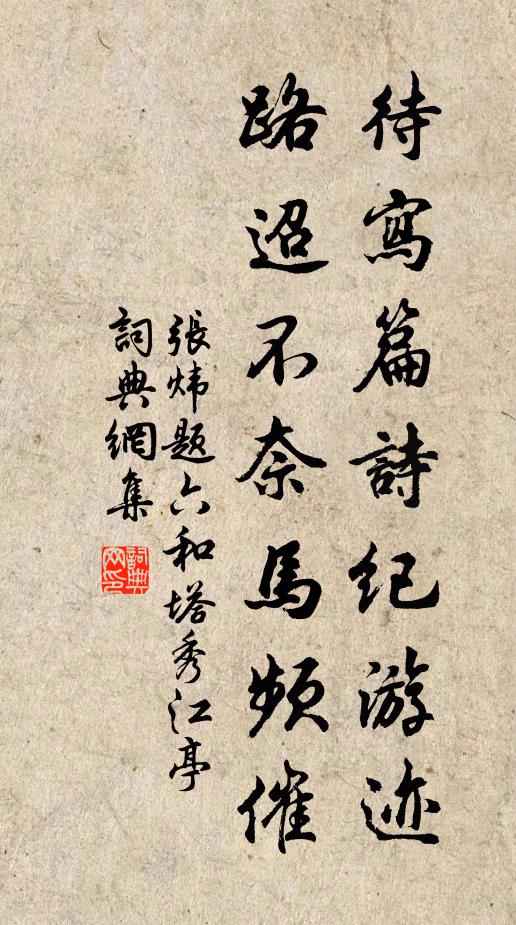 待寫篇詩紀游迹
路迢不奈馬頻催
張炜题六和塔秀江亭
詞典網集
詞典网印